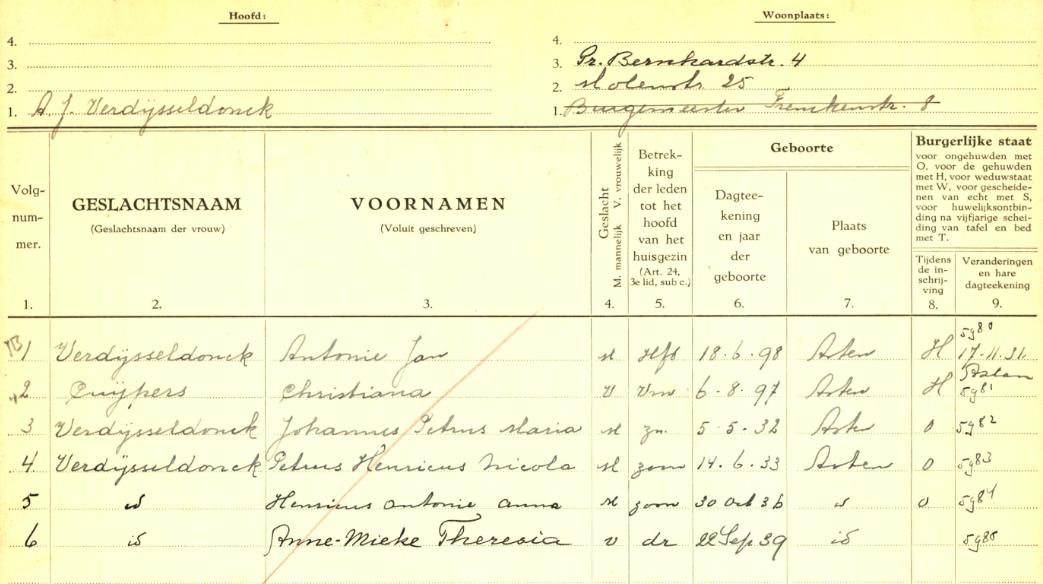 Hoofd:
Woonplaats:
4.
4.
3.
3. Pr. Bernhardstr. 4
2.
2. Molenstr. 25
1. A. J. Verdijsseldonck
1. Burgemeester Frenckenstr. 8
Volg-
num-
mer.
1.
GESLACHTSNAAM
(Geslachtsnaam der vrouw)
2.
VOORNAMEN
(Voluit geschreven)
3.
Geslacht
M. mannelijk V. vrouwelijk
4.
Betrek-
king
der leden
tot het
hoofd
van het
huisgezin
(Art. 24,
3e lid, sub c.)
5.
Geboorte
Dagtee-
kening
en jaar
der
geboorte
6.
Plaats
van geboorte
7.
Burgerlijke staat
voor ongehuwden met
O, voor de gehuwden
met H, voor weduwstaat
met W, voor gescheide-
nen van echt met S,
voor huwelijksontbin-
ding na vijfjarige schei-
ding van tafel en bed
met T.
Tijdens
de in-
schrij-
ving
8.
Veranderingen
en hare
dagteekening
9.
1 Verdijsseldonck Antonie Jan M Hfd 18.6.98 Asten H 5980 17.11.31 Asten
2 Cuijpers Christiana V Vrw 6-8-97 Asten H 5981
3 Verdijsseldonck Johannus Petrus Maria M zn. 5-5-32 Asten O 5982
4 Verdijsseldonck Petrus Henricus Nicola M zoon 14.6.33 Asten O 5983
5 id Henricus Antonie Anna M zoon 30 Oct 36 id O 5984
6 id Anne-Mieke Theresia V dr 22 Sep 39 id 5985